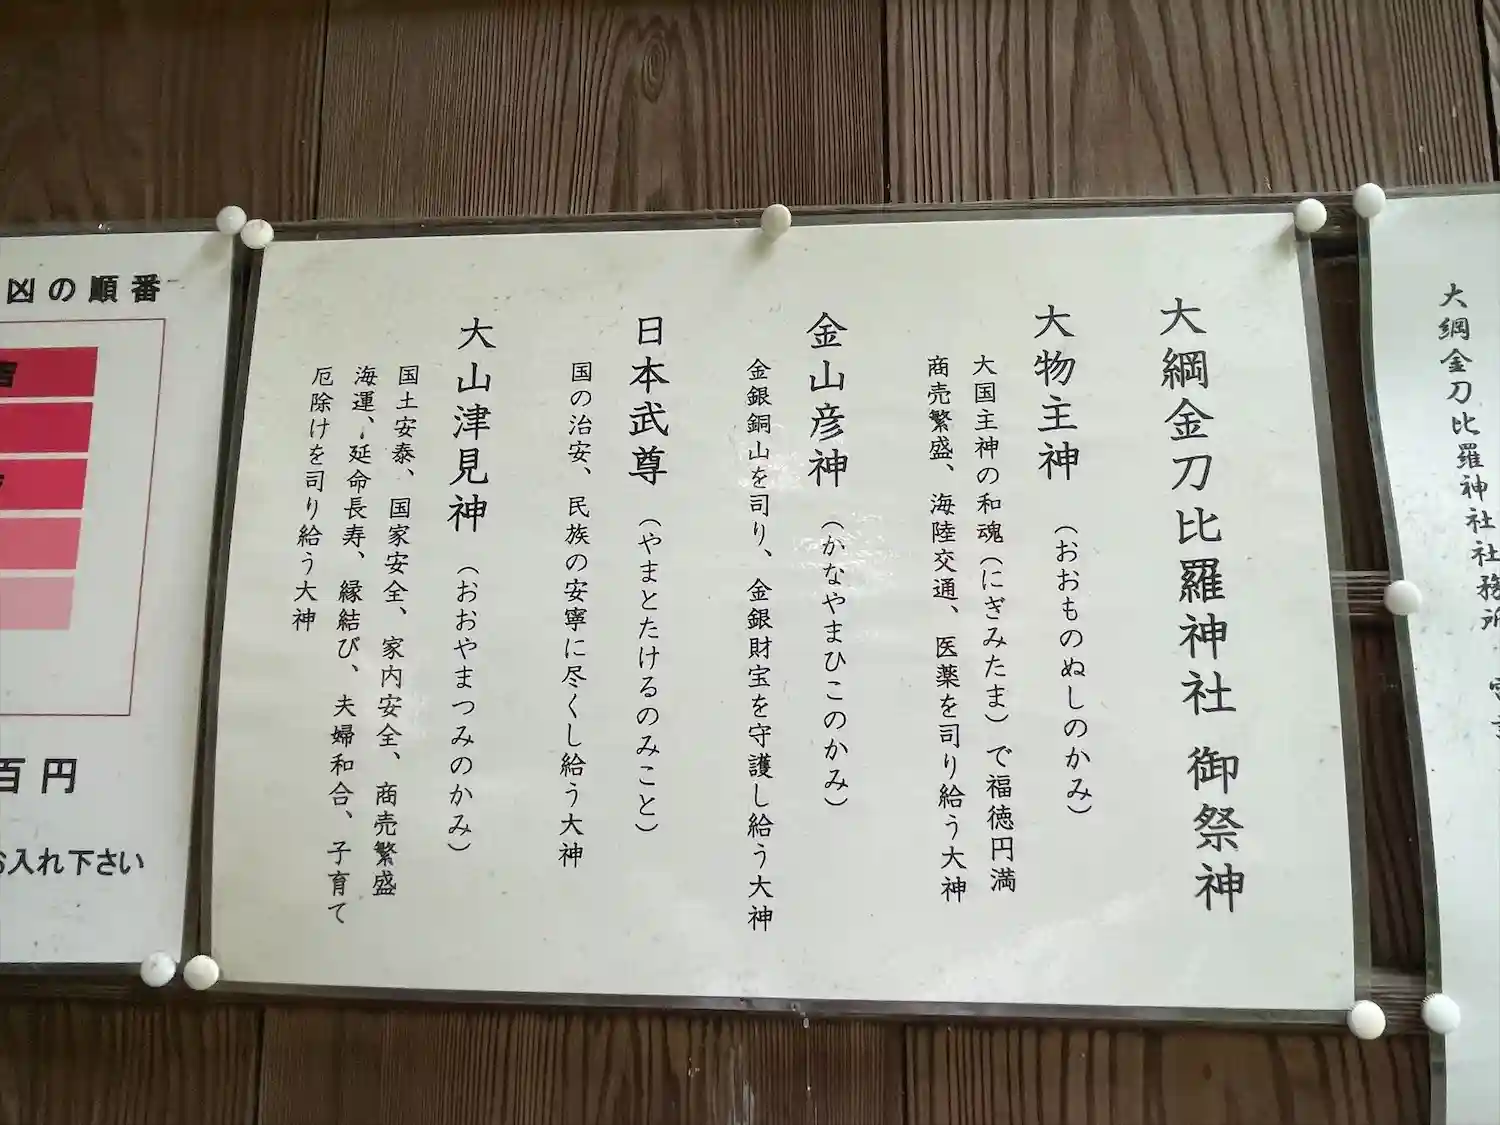 大綱金刀比羅神社 御祭神
大物主神（おおものぬしのかみ）
大国主神の和魂（にぎみたま）で福徳円満
商売繁盛、海陸交通、医薬を司り給う大神
金山彦神（かなやまひこのかみ）
金銀銅山を司り、金銀財宝を守護し給う大神
日本武尊（やまとたけるのみこと）
国の治安、民族の安寧に尽くし給う大神
大山津見神（おおやまつみのかみ）
国土安泰、国家安全、家内安全、商売繁盛
海運、延命長寿、縁結び、夫婦和合、子育て
厄除けを司り給う大神
凶の順番
百円
お入れ下さい
大綱金刀比羅神社社務所